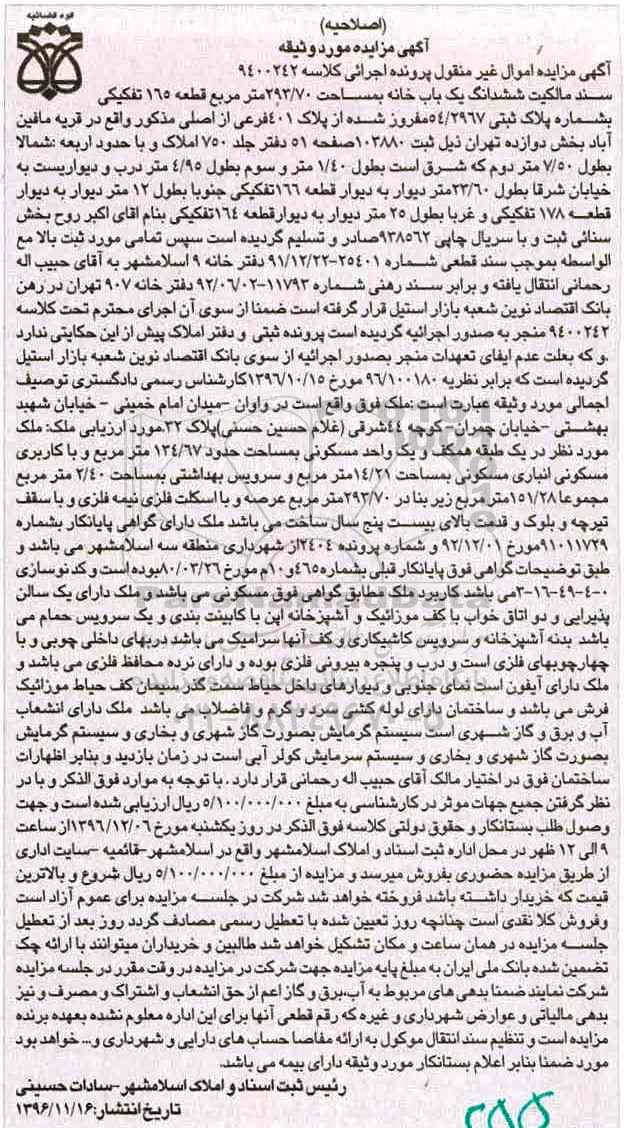 قوه قضائیه
(اصلاحیه)
آگهی مزایده مورد وثیقه
آگهی مزایده اموال غیر منقول پرونده اجرائی کلاسه ۹۴۰۰۲۴۲
سند مالکیت ششدانگ یک باب خانه بمساحت ۲۹۳/۷۰متر مربع قطعه ۱۶۵ تفکیکی
بشماره پلاک ثبتی ۵۴/۲۹۶۷مفروز شده از پلاک ۴۰۱فرعی از اصلی مذکور واقع در قریه مافین
آباد بخش دوازده تهران ذیل ثبت ۱۰۳۸۸۰صفحه ۵۱ دفتر جلد ۷۵۰ املاک و با حدود اربعه :شمالا
بطول ۷/۵۰ متر دوم که شرق است بطول ۱/۴۰ متر و سوم بطول ۴/۹۵ متر درب و دیواریست به
خیابان شرقا بطول ۲۳/۶۰متر دیوار به دیوار قطعه ۱۶۶تفکیکی جنوبا بطول ۱۲ متر دیوار به دیوار
قطعه ۱۷۸ تفکیکی و غربا بطول ۲۵ متر دیوار به دیوارقطعه ۱۶۴تفکیکی بنام اقای اکبر روح بخش
سنائی ثبت و با سریال چاپی ۹۳۸۵۶۲صادر و تسلیم گردیده است سپس تمامی مورد ثبت بالا مع
الواسطه بموجب سند قطعی شماره ۲۵۴۰۱-۹۱/۱۲/۲۲ دفتر خانه ۹ اسلامشهر به آقای حبیب اله
رحمانی انتقال یافته و برابر سند رهنی شماره ۱۱۷۹۳-۹۲/۰۶/۰۲ دفتر خانه ۹۰۷ تهران در رهن
بانک اقتصاد نوین شعبه بازار استیل قرار گرفته است ضمنا از سوی آن اجرای محترم تحت کلاسه
۹۴۰۰۲۴۲ منجر به صدور اجرائیه گردیده است پرونده ثبتی و دفتر املاک پیش از این حکایتی ندارد
.و که بعلت عدم ایفای تعهدات منجر بصدور اجرائیه از سوی بانک اقتصاد نوین شعبه بازار استیل
گردیده است که برابر نظریه ۹۶/۱۰۰۱۸۰ مورخ ۱۳۹۶/۱۰/۱۵کارشناس رسمی دادگستری توصیف
اجمالی مورد وثیقه عبارت است :ملک فوق واقع است در واوان -میدان امام خمینی - خیابان شهید
بهشتی -خیابان چمران-کوچه ۴۴شرقی (غلام حسین حسنی)پلاک ۳۲.مورد ارزیابی ملک: ملک
مورد نظر در یک طبقه همکف و یک واحد مسکونی بمساحت حدود ۱۳۴/۶۷ متر مربع و با کاربری
مسکونی انباری مسکونی بمساحت ۱۴/۲۱متر مربع و سرویس بهداشتی بمساحت ۲/۴۰ متر مربع
مجموعا ۱۵۱/۲۸متر مربع زیر بنا در ۲۹۳/۷۰متر مربع عرصه و با اسکلت فلزی نیمه فلزی و با سقف
تیرچه و بلوک و قدمت بالای بیست پنج سال ساخت می باشد ملک دارای گواهی پایانکار بشماره
۹۱۰۱۱۷۲۹مورخ ۹۲/۱۲/۰۱ و شماره پرونده ۲۴۰۴از شهرداری منطقه سه اسلامشهر می باشد و
طبق توضیحات گواهی فوق پایانکار قبلی بشماره۴۶۵و۱۰م مورخ ۸۰/۰۳/۲۶بوده است و کد نوسازی
۳-۱۶-۴۹-۴-۰می باشد کاربرد ملک مطابق گواهی فوق مسکونی می باشد و ملک دارای یک سالن
پذیرایی و دو اتاق خواب با کف موزائیک و آشپزخانه اپن با کابینت بندی و یک سرویس حمام می
باشد بدنه آشپزخانه و سرویس کاشیکاری و کف آنها سرامیک می باشد دربهای داخلی چوبی و با
چهارچوبهای فلزی است و درب و پنجره بیرونی فلزی بوده و دارای نرده محافظ فلزی می باشد و
ملک دارای آیفون است نمای جنوبی و دیوارهای داخل حیاط سفت گذر سیمان کف حیاط موزائیک
فرش می باشد و ساختمان دارای لوله کشی سرد و گرم و فاضلاب می باشد ملک دارای انشعاب
آب و برق و گاز شهری است سیستم گرمایش بصورت گاز شهری و بخاری و سیستم گرمایش
بصورت گاز شهری و بخاری و سیستم سرمایش کولر آبی است در زمان بازدید و بنابر اظهارات
ساختمان فوق در اختیار مالک آقای حبیب اله رحمانی قرار دارد . با توجه به موارد فوق الذکر و با در
نظر گرفتن جمیع جهات موثر در کارشناسی به مبلغ ۵/۱۰۰/۰۰۰/۰۰۰ ریال ارزیابی شده است و جهت
وصول طلب بستانکار و حقوق دولتی کلاسه فوق الذکر در روز یکشنبه مورخ ۱۳۹۶/۱۲/۰۶از ساعت
۹ الی ۱۲ ظهر در محل اداره ثبت اسناد و املاک اسلامشهر واقع در اسلامشهر-قائمیه -سایت اداری
از طریق مزایده حضوری بفروش میرسد و مزایده از مبلغ ۵/۱۰۰/۰۰۰/۰۰۰ ریال شروع و بالاترین
قیمت که خریدار داشته باشد فروخته خواهد شد شرکت در جلسه مزایده برای عموم آزاد است
وفروش کلا نقدی است چنانچه روز تعیین شده با تعطیل رسمی مصادف گردد روز بعد از تعطیل
جلسه مزایده در همان ساعت و مکان تشکیل خواهد شد طالبین و خریداران میتوانند با ارائه چک
تضمین شده بانک ملی ایران به مبلغ پایه مزایده جهت شرکت در مزایده در وقت مقرر در جلسه مزایده
شرکت نمایند ضمنا بدهی های مربوط به آب،برق و گاز اعم از حق انشعاب و اشتراک و مصرف و نیز
بدهی مالیاتی و عوارض شهرداری و غیره که رقم قطعی آنها برای این اداره معلوم نشده بعهده برنده
مزایده است و تنظیم سند انتقال موکول به ارائه مفاصا حساب های دارایی و شهرداری و... خواهد بود
مورد ضمنا بنابر اعلام بستانکار مورد وثیقه دارای بیمه می باشد.
رئیس ثبت اسناد و املاک اسلامشهر-سادات حسینی
تاریخ انتشار:۱۳۹۶/۱۱/۱۶